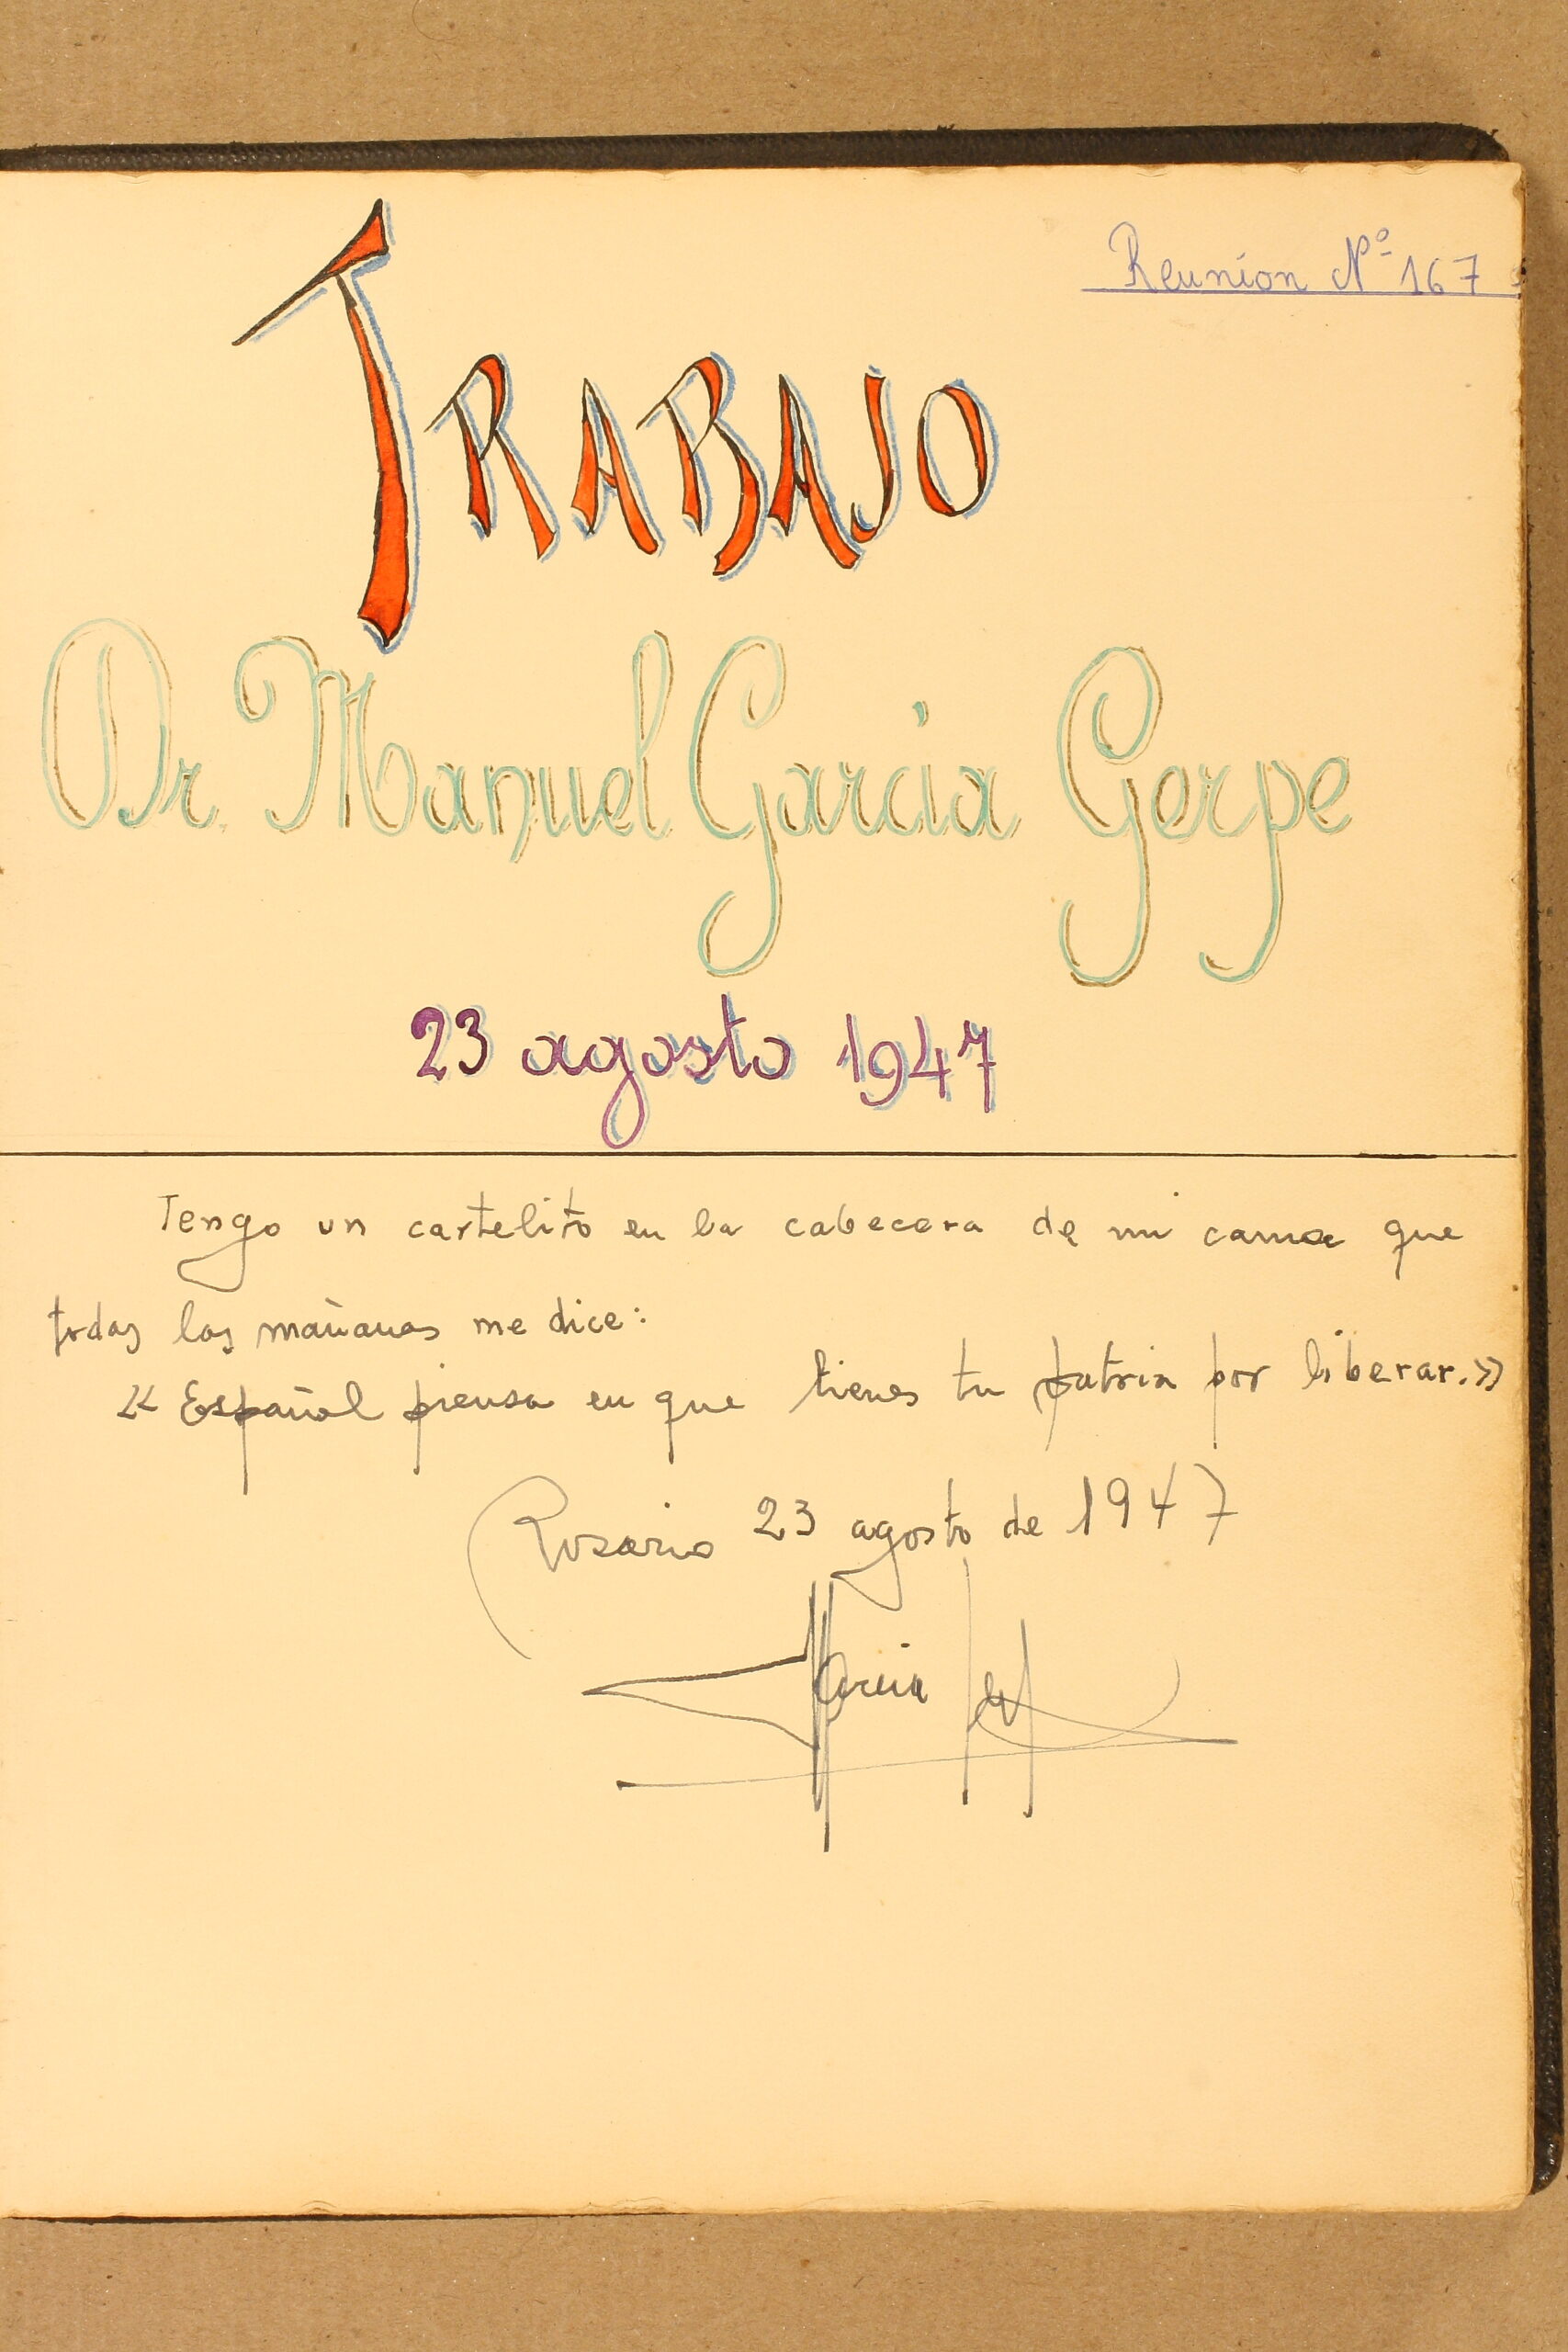 Reunión Nº 167
TRABAJO
Dr. Manuel García Gerpe
23 agosto 1947
Tengo un cartelito en la cabecera de mi cama que
todas las mañanas me dice:
« Español piensa en que tienes tu patria por liberar.»
Rosario 23 agosto de 1947
García